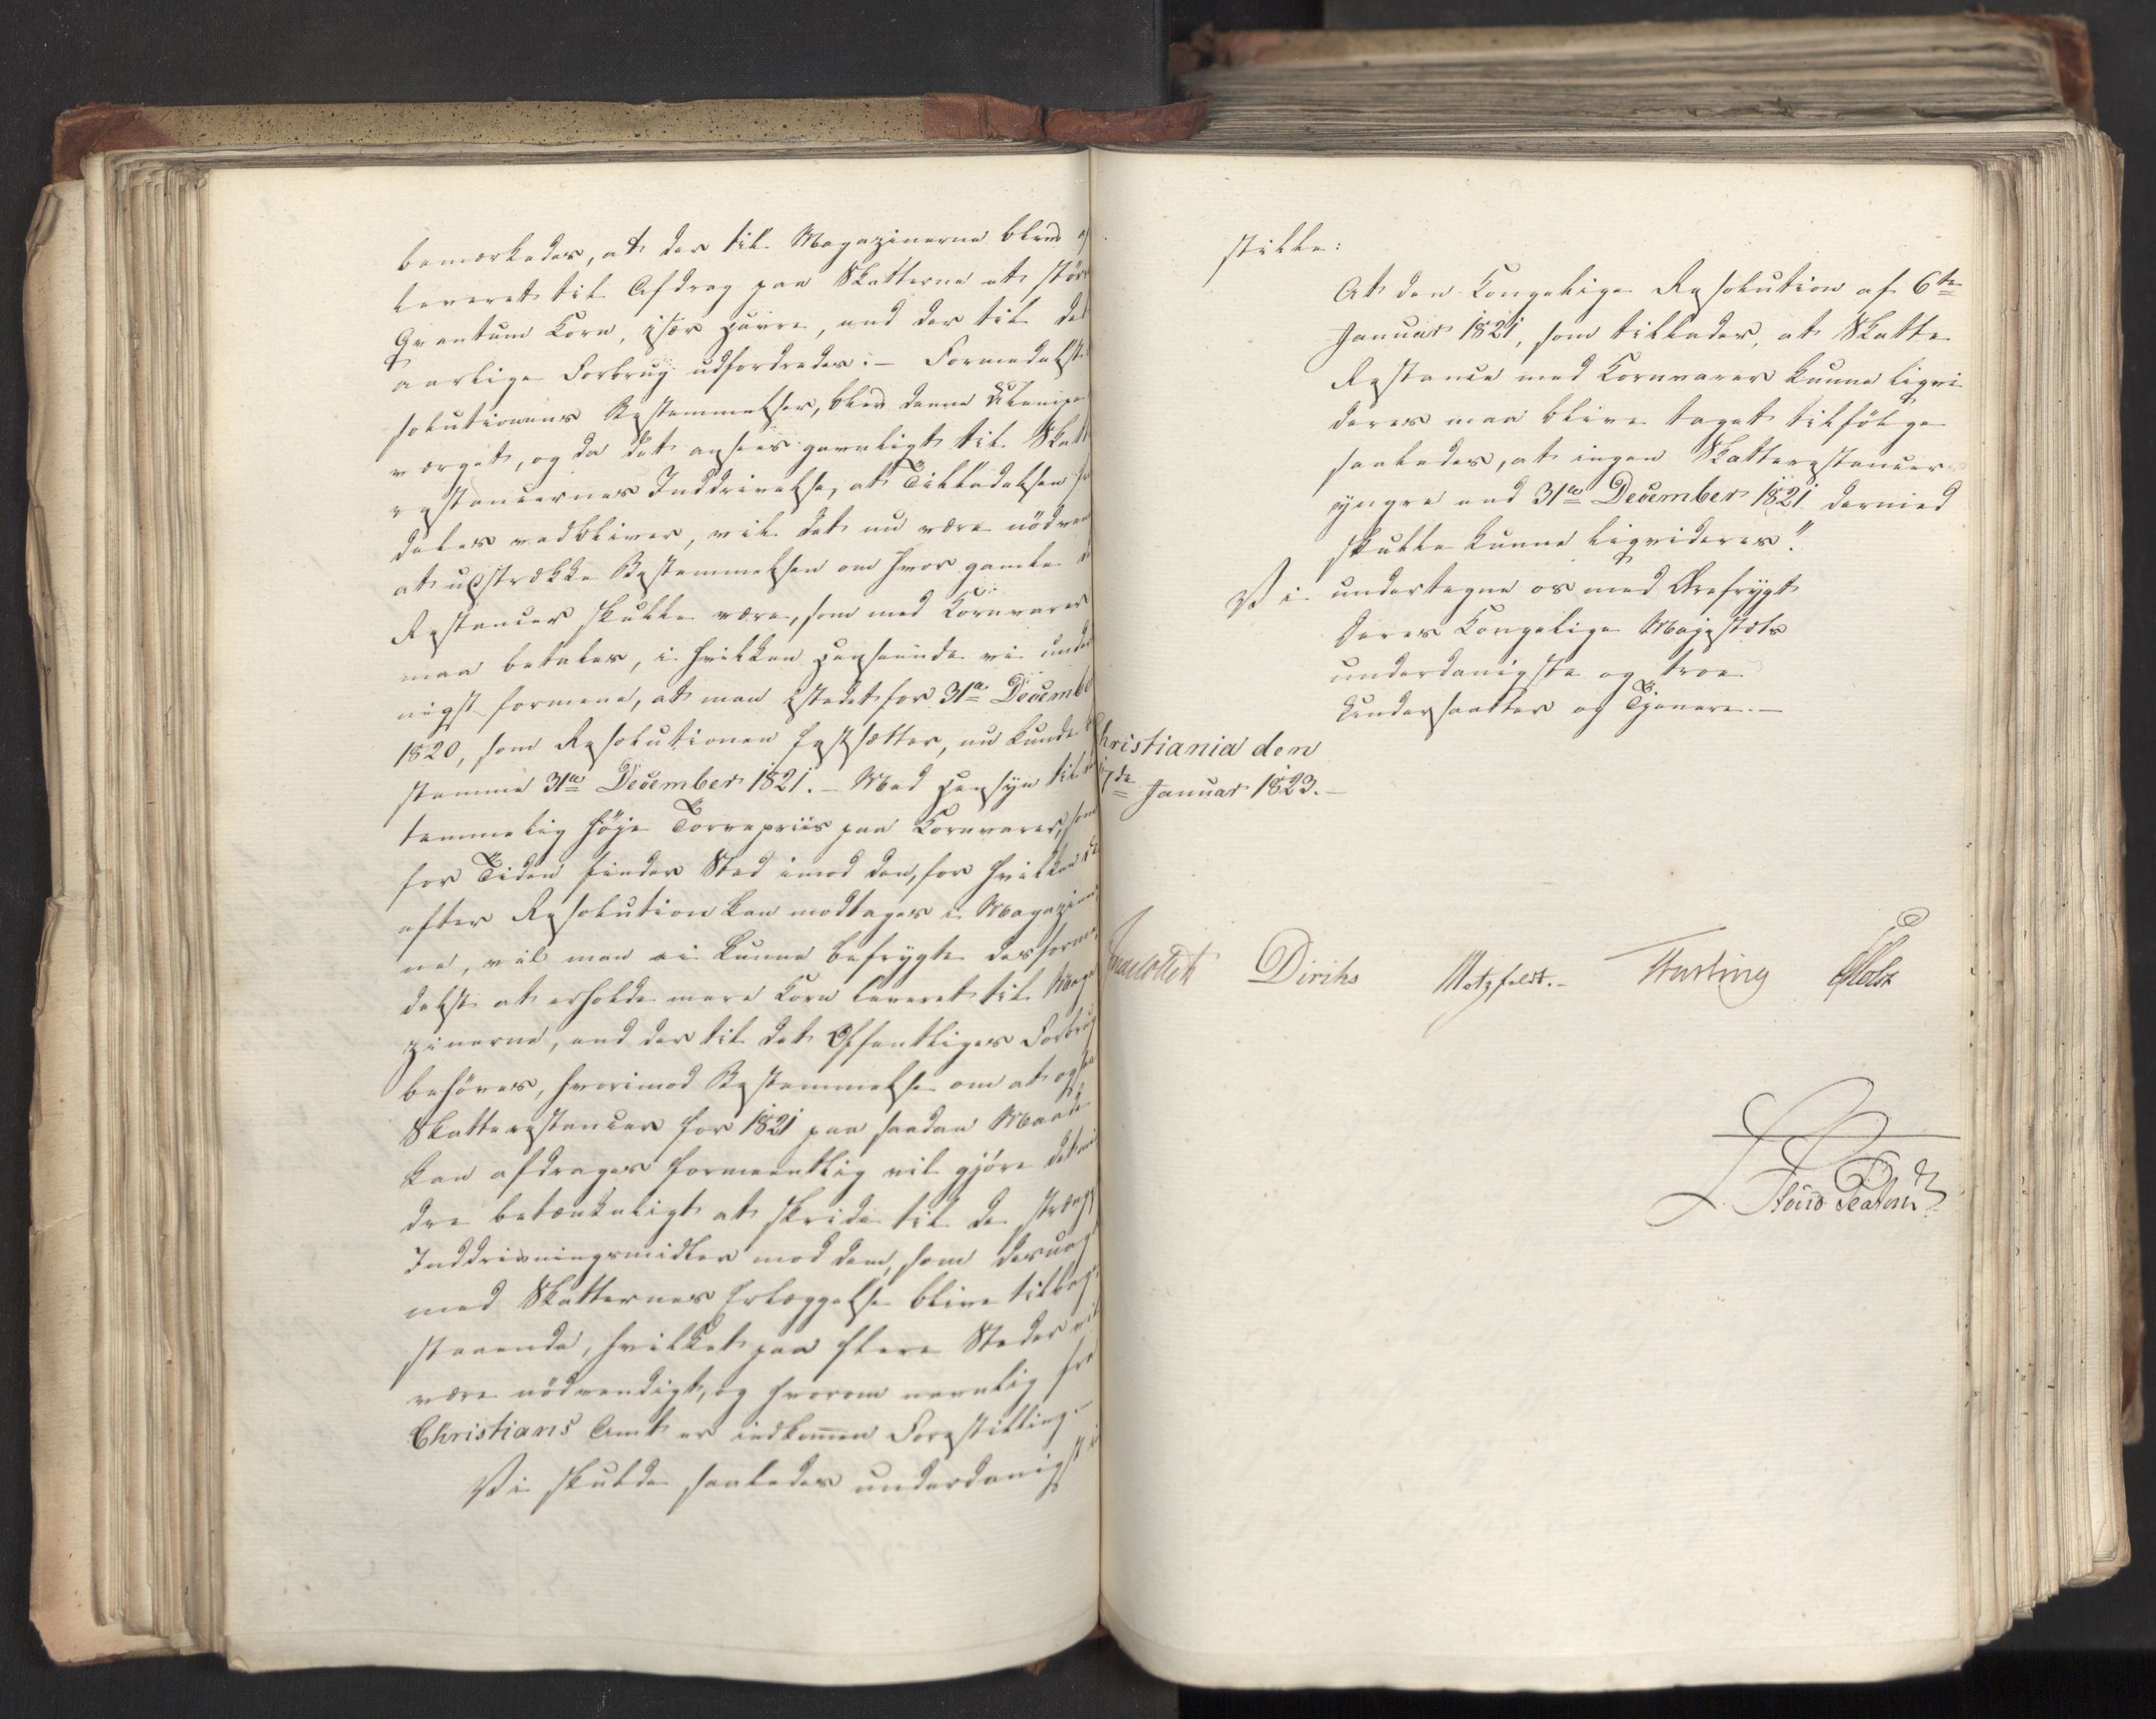 bemærkedes, at der til Magazinerne blev
leveret til Afdrag paa Skatterne et
Qvantum Korn, især Havre, end der til
aarlige Forbrug udfordredes. – Formedelst
solutionens Bestemmelser, blev denne
værget, og da det ansees gavnligt til
restancernes Inddrivelse, at Tilladelsen
deles vedbliver, vil det nu være
at udstrække Bestemmelsen om hvor gamle
Restancer skulle være, som med Kornvarer
maa betales, i hvilken Henseende vi
nigst formene, at man istedet for 31te
1820, som Resolutionen fastsætter, nu kunde
stemme 31te December 1821. – Med Hensyn til
temmelig høje Torvepriis paa Kornvarer, som
for Tiden finder Sted imod den, for hvilken
efter Resolution kan modtages i
ne, vil man ei kunne befrygte
delst at erholde mere Korn leveret til
zinerne, end der til det Offentliges Forbrug
behøves, hvorimod Bestemmelse om at
Skatterestancer for 1821 paa saadan Maade
kan afdrages formeentlig vil gjøre
dre betænkeligt at skride til de
Inddrivningsmidler mod dem, som
med Skatternes Erlæggelse blive
staaende, hvilket paa flere Steder
være nødvendigt, og hvorom navnlig
Christians Amt er indkommen Forestilling. –
Vi skulde saaledes underdanigst
stille:
At den Kongelige Resolution af 6te
Januar 1821, som tillader, at Skatte
Restance med Kornvarer kunne liqvi
deres maa blive taget tilfølge
saaledes, at ingen Skatterestancer
yngre end 31te December 1821 dermed
skulle kunne liqvideres".
Vi undertegne os med Ærefrygt
Deres Kongelige Majestæts
underdanigste og troe
Undersaatter og Tjenere. –
Christiania den
17de Januar 1823. –
Diriks Motzfeldt. – Holst